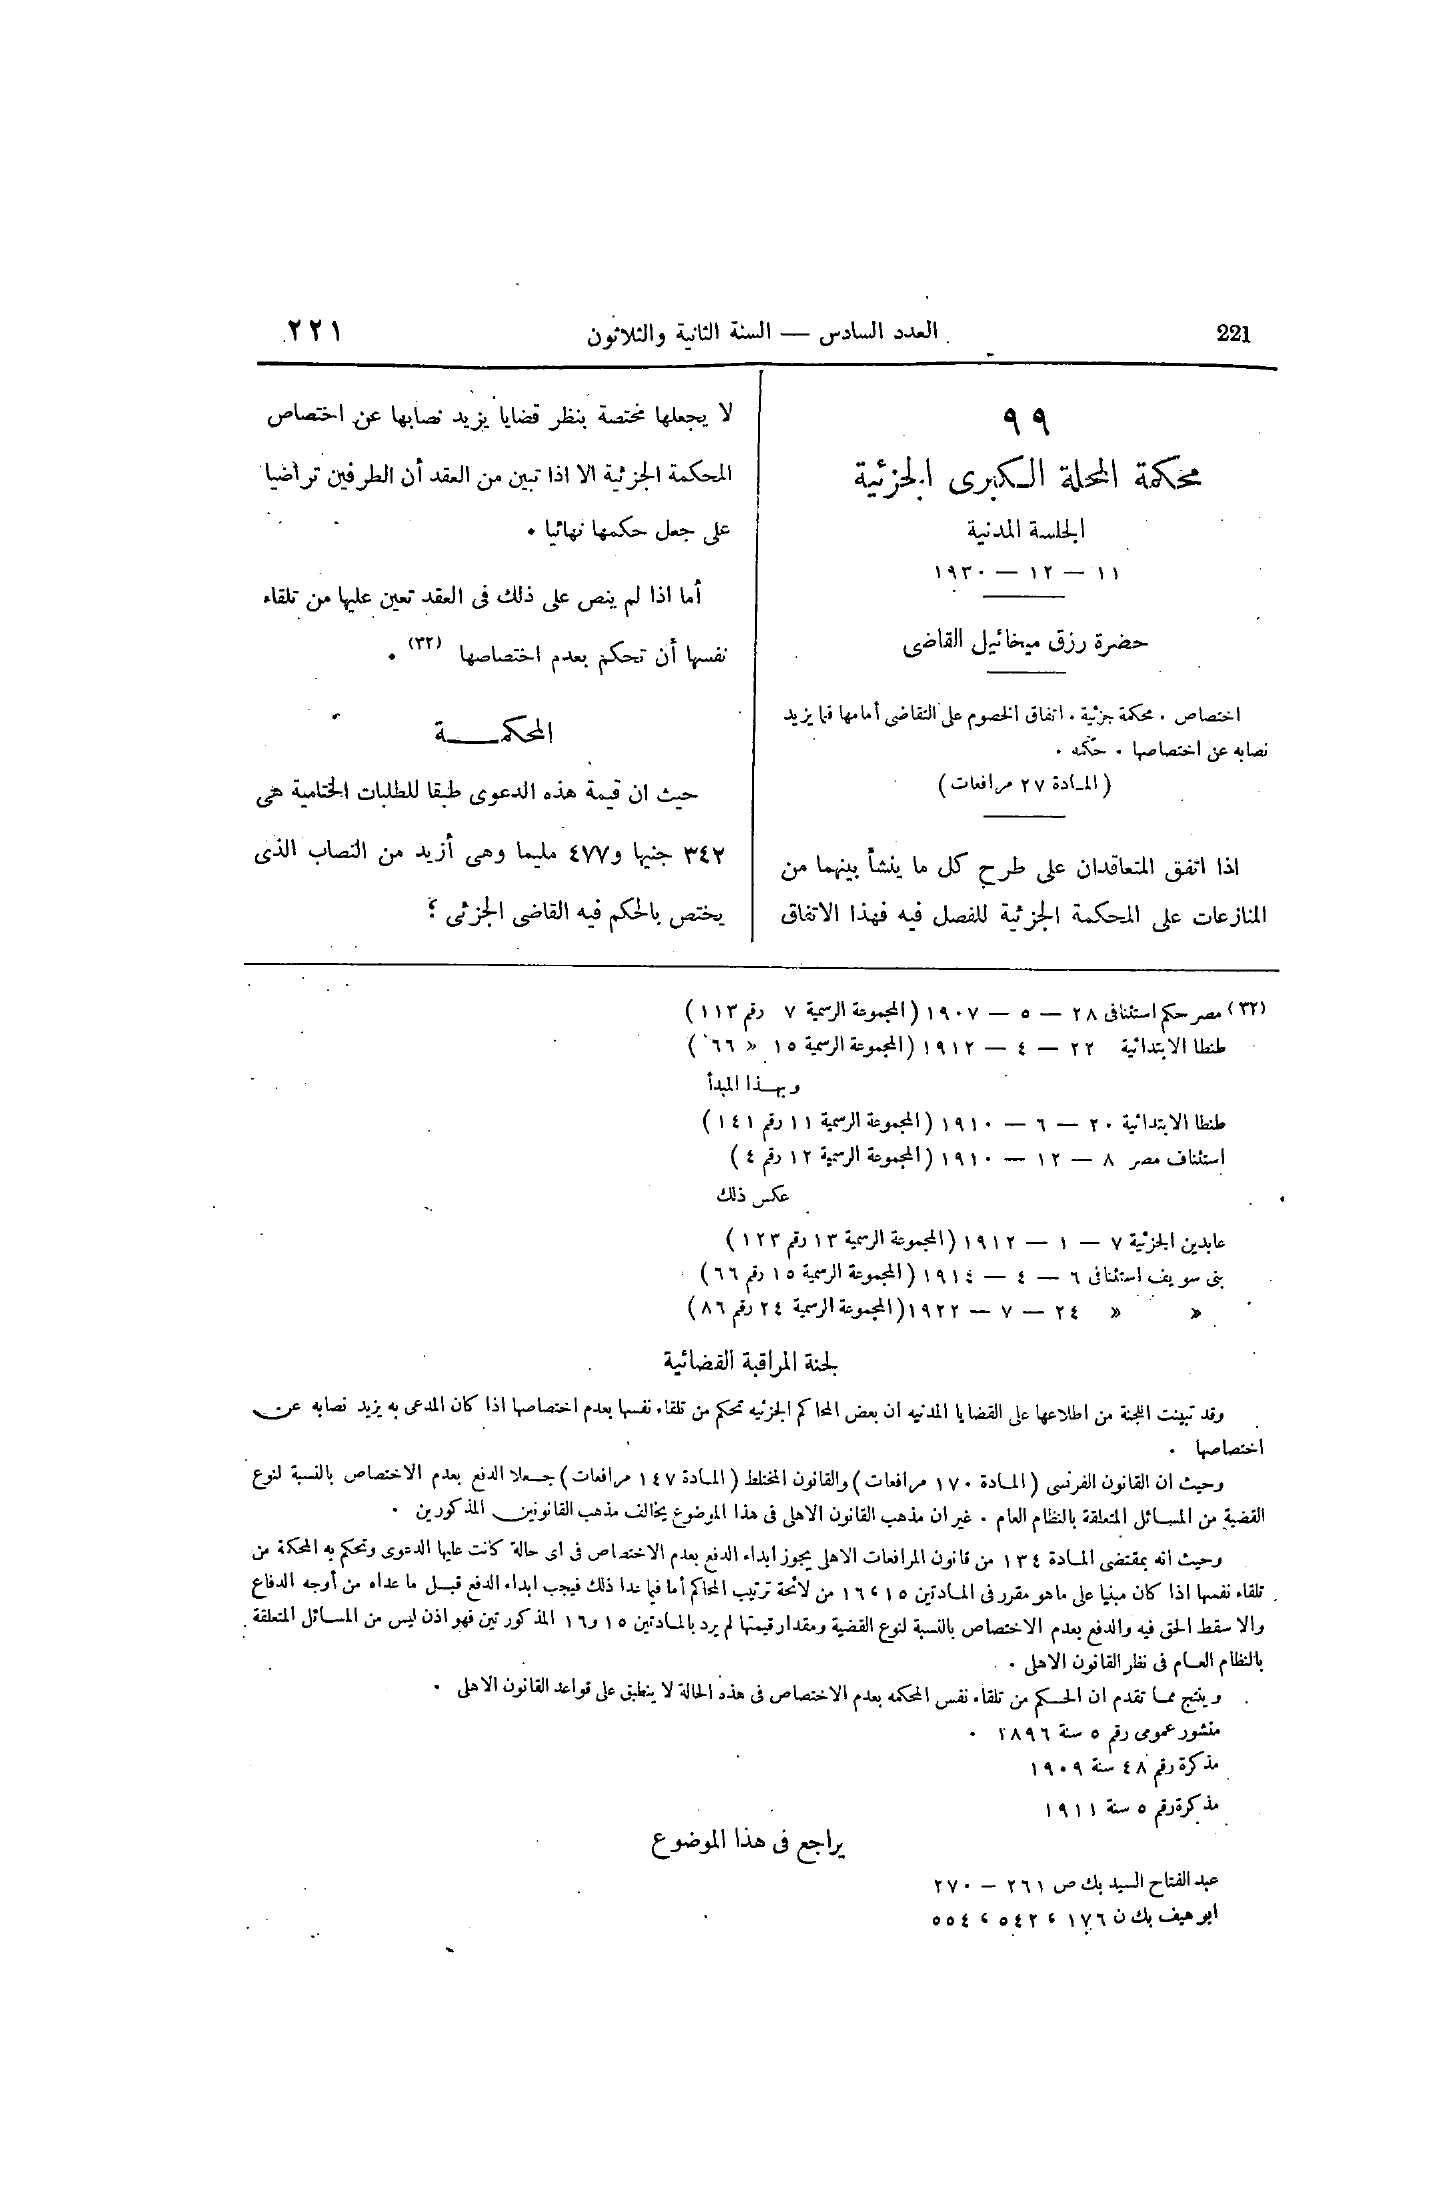 221
العدد السادس — السنة الثانية والثلاثون
٢٢١
٩٩
محكمة المحلة الكبرى الجزئية
الجلسة المدنية
١١ — ١٢ — ١٩٣٠
حضرة رزق ميخائيل القاضى
اختصاص . محكمة جزئية . اتفاق الخصوم على التقاضى أمامها فيما يزيد
نصابه عن اختصاصها . حكمه .
(المادة ٢٧ مرافعات)
اذا اتفق المتعاقدان على طرح كل ما ينشأ بينهما من
المنازعات على المحكمة الجزئية للفصل فيه فهذا الاتفاق
لا يجعلها مختصة بنظر قضايا يزيد نصابها عن اختصاص
المحكمة الجزئية الا اذا تبين من العقد أن الطرفين تراضيا
على جعل حكمها نهائيا .
أما اذا لم ينص على ذلك فى العقد تعين عليها من تلقاء
نفسها أن تحكم بعدم اختصاصها (٣٢) .
المحكمــــة
حيث ان قيمة هذه الدعوى طبقا للطلبات الختامية هى
٣٤٢ جنيها و٤٧٧ مليما وهى أزيد من النصاب الذى
يختص بالحكم فيه القاضى الجزئى ؛
(٣٢) مصر حكم استئنافى ٢٨ — ٥ — ١٩٠٧ (المجموعة الرسمية ٧ رقم ١١٣)
طنطا الابتدائية ٢٢ — ٤ — ١٩١٢ (المجموعة الرسمية ١٥ » ٦٦)
وبهـذا المبدأ
طنطا الابتدائية ٢٠ — ٦ — ١٩١٠ (المجموعة الرسمية ١١ رقم ١٤١)
استئناف مصر ٨ — ١٢ — ١٩١٠ (المجموعة الرسمية ١٢ رقم ٤)
عكس ذلك
عابدين الجزئية ٧ — ١ — ١٩١٢ (المجموعة الرسمية ١٣ رقم ١٢٣)
بنى سويف استئنافى ٦ — ٤ — ١٩١٤ (المجموعة الرسمية ١٥ رقم ٦٦)
» » ٢٤ — ٧ — ١٩٢٢ (المجموعة الرسمية ٢٤ رقم ٨٦)
لجنة المراقبة القضائية
وقد تبينت اللجنة من اطلاعها على القضايا المدنيه ان بعض المحاكم الجزئيه تحكم من تلقاء نفسها بعدم اختصاصها اذا كان المدعى به يزيد نصابه عن
اختصاصها .
وحيث ان القانون الفرنسى (المـادة ١٧٠ مرافعات) والقانون المختلط (المـادة ١٤٧ مرافعات) جـعلا الدفع بعدم الاختصاص بالنسبة لنوع
القضية من المسائل المتعلقة بالنظام العام . غير ان مذهب القانون الاهلى فى هذا الموضوع يخالف مذهب القانونين المذكورين .
وحيث انه بمقتضى المـادة ١٣٤ من قانون المرافعات الاهلى يجوز ابداء الدفع بعدم الاختصاص فى اى حالة كانت عليها الدعوى وتحكم به المحكمة من
تلقاء نفسها اذا كان مبنيا على ماهو مقرر فى المـادتين ١٥ ، ١٦ من لائحة ترتيب المحاكم أما فيما عدا ذلك فيجب ابداء الدفع قبـل ما عداه من أوجه الدفاع
والا سقط الحق فيه والدفع بعدم الاختصاص بالنسبة لنوع القضية ومقدار قيمتها لم يرد بالمـادتين ١٥ و١٦ المذكورتين فهو اذن ليس من المسائل المتعلقة
بالنظام العـام فى نظر القانون الاهلى .
وينتج ممـا تقدم ان الحـكم من تلقاء نفس المحكمه بعدم الاختصاص فى هذه الحالة لا ينطبق على قواعد القانون الاهلى .
منشور عمومى رقم ٥ سنة ١٨٩٦ .
مذكرة رقم ٤٨ سنة ١٩٠٩
مذكرة رقم ٥ سنة ١٩١١
يراجع فى هذا الموضوع
عبد الفتاح السيد بك ص ٢٦١ — ٢٧٠
ابو هيف بك ن ١٧٦ ، ٥٤٢ ، ٥٥٤